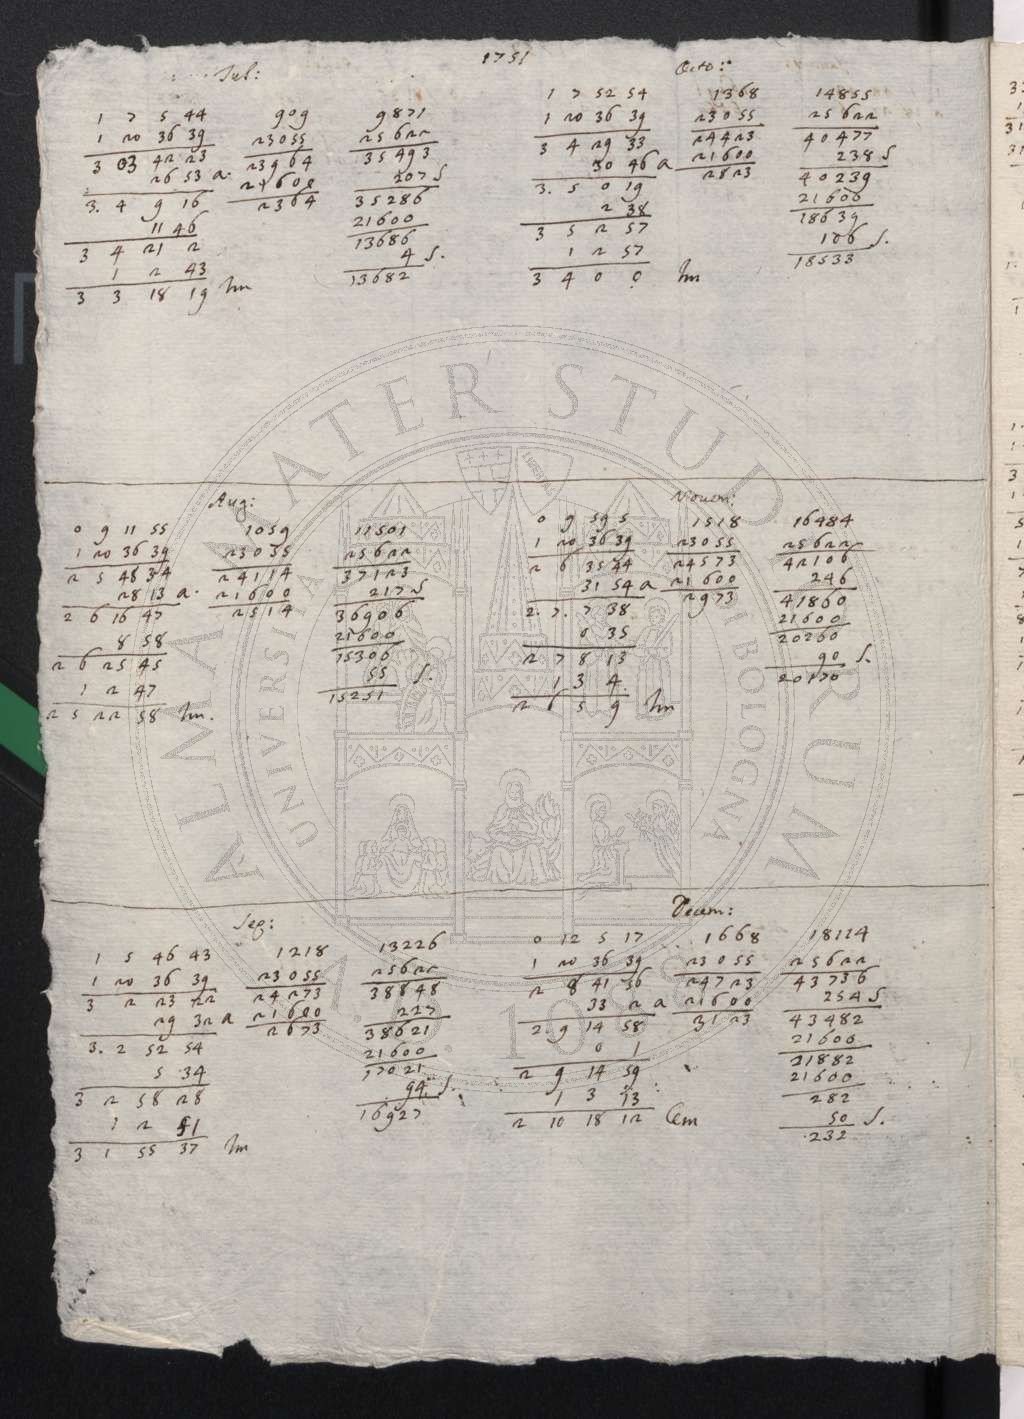 1751
Jul:
1 7 5 44 909 9871
1 20 36 39 23055 25622
3 03 42 23 23964 35493
26 53 a. 21600 207 S
3. 4 9 16 2364 35286
11 46 21600
3 4 21 2 13686
1 2 43 4 S.
3 3 18 19 hm 13682
Octo:
1 7 52 54 1368 14855
1 20 36 39 23055 25622
3 4 29 33 24423 40477
30 46 a 21600 238 S
3. 5 0 19 2823 40239
2 38 21600
3 5 2 57 18639
1 2 57 106 S.
3 4 0 0 hm 18533
Aug:
0 9 11 55 1059 11501
1 20 36 39 23055 25622
2 5 48 34 24114 37123
28 13 a. 21600 217 S
2 6 16 47 2514 36906
8 58 21600
2 6 25 45 15306
1 2 47 55 S.
2 5 22 58 hm. 15251
Novem:
0 9 59 5 1518 16484
1 20 36 39 23055 25622
2 6 35 44 24573 42106
31 54 a 21600 246
2. 7. 7 38 2973 41860
0 35 21600
2 7 8 13 20260
1 3 4 90 S.
2 6 5 9 hm 20170
Sep:
1 5 46 43 1218 13226
1 20 36 39 23055 25622
3 2 23 22 24273 38848
29 32 a 21600 227
3. 2 52 54 2673 38621
5 34 21600
3 2 58 28 17021
1 2 51 94. S.
3 1 55 37 hm 16927
Decem:
0 12 5 17 1668 18114
1 20 36 39 23055 25622
2 8 41 56 24723 43736
33 2 a 21600 254 S
2. 9 14 58 3123 43482
0 1 21600
2 9 14 59 21882
1 3 13 21600
2 10 18 12 Cem 282
50 S.
232
ALMA MATER STUDIORUM
UNIVERSITÀ DI BOLOGNA
A.D. 1088